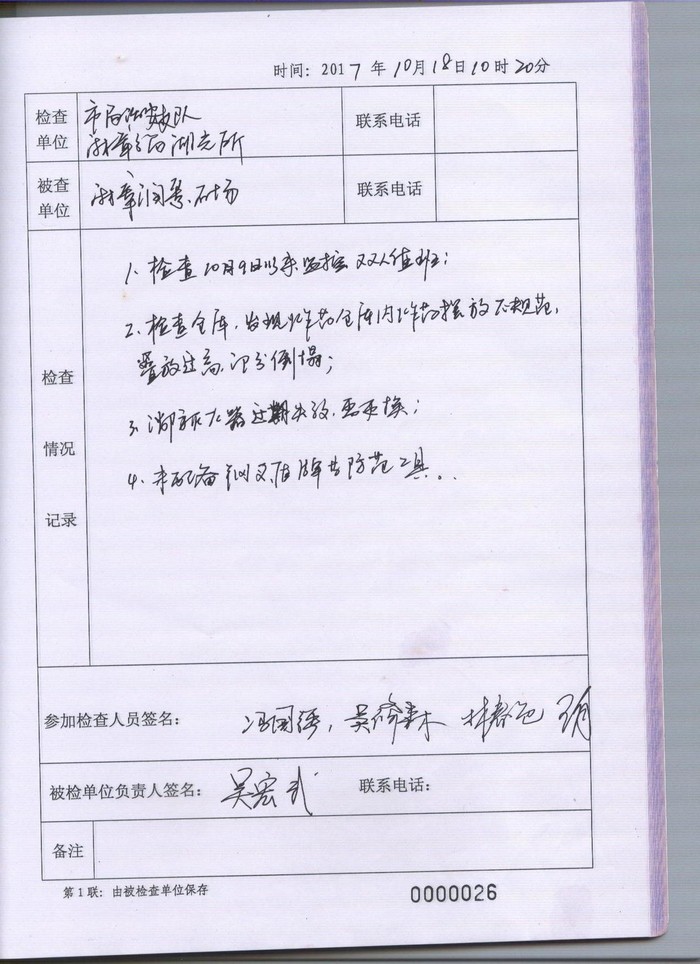 时间：2017年10月18日10时20分
检查单位
市局治安支队
湖光所
联系电话
被查单位
石场
联系电话
检查情况记录
1、检查10月9日以来监控双人值班；
2、检查仓库，发现炸药仓库内炸药摆放不规范，
叠放过高，倒塌；
3、消防灭火器过期失效，需更换；
4、未配备钢叉盾牌等防范工具。
参加检查人员签名：
被检单位负责人签名：吴宏武
联系电话：
备注
第1联：由被检查单位保存
0000026